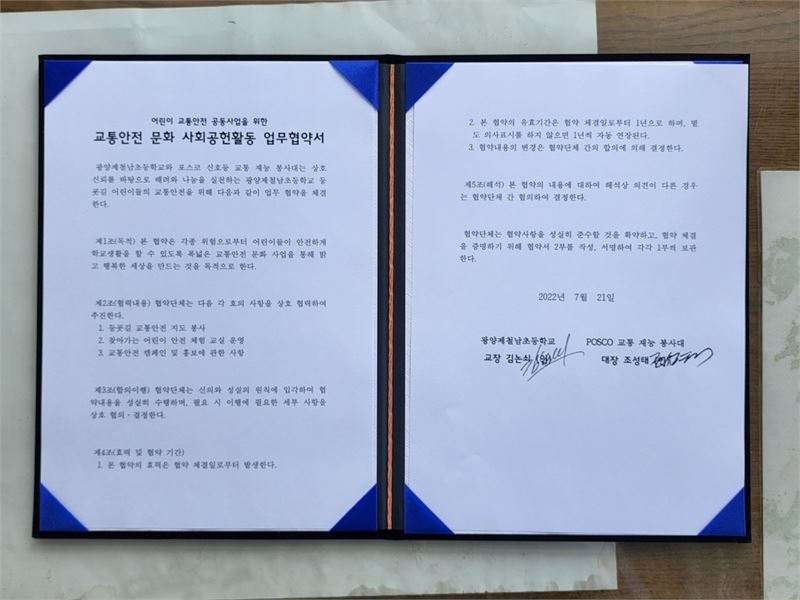 어린이 교통안전 공동사업을 위한
교통안전 문화 사회공헌활동 업무협약서
광양제철남초등학교와 포스코 신호등 교통 재능 봉사대는 상호
신뢰를 바탕으로 배려와 나눔을 실천하는 광양제철남초등학교 등
굣길 어린이들의 교통안전을 위해 다음과 같이 업무 협약을 체결
한다.
제1조(목적) 본 협약은 각종 위험으로부터 어린이들이 안전하게
학교생활을 할 수 있도록 폭넓은 교통안전 문화 사업을 통해 밝
고 행복한 세상을 만드는 것을 목적으로 한다.
제2조(협력내용) 협약단체는 다음 각 호의 사항을 상호 협력하여
추진한다.
1. 등굣길 교통안전 지도 봉사
2. 찾아가는 어린이 안전 체험 교실 운영
3. 교통안전 캠페인 및 홍보에 관한 사항
제3조(합의이행) 협약단체는 신의와 성실의 원칙에 입각하여 협
약내용을 성실히 수행하며, 필요 시 이행에 필요한 세부 사항을
상호 협의·결정한다.
제4조(효력 및 협약 기간)
1. 본 협약의 효력은 협약 체결일로부터 발생한다.
2. 본 협약의 유효기간은 협약 체결일로부터 1년으로 하며, 별
도 의사표시를 하지 않으면 1년씩 자동 연장된다.
3. 협약내용의 변경은 협약단체 간의 합의에 의해 결정한다.
제5조(해석) 본 협약의 내용에 대하여 해석상 의견이 다른 경우
는 협약단체 간 협의하여 결정한다.
협약단체는 협약사항을 성실히 준수할 것을 확약하고, 협약 체결
을 증명하기 위해 협약서 2부를 작성, 서명하여 각각 1부씩 보관
한다.
2022년 7월 21일
광양제철남초등학교 POSCO 교통 재능 봉사대
교장 (인) 대장 조성태